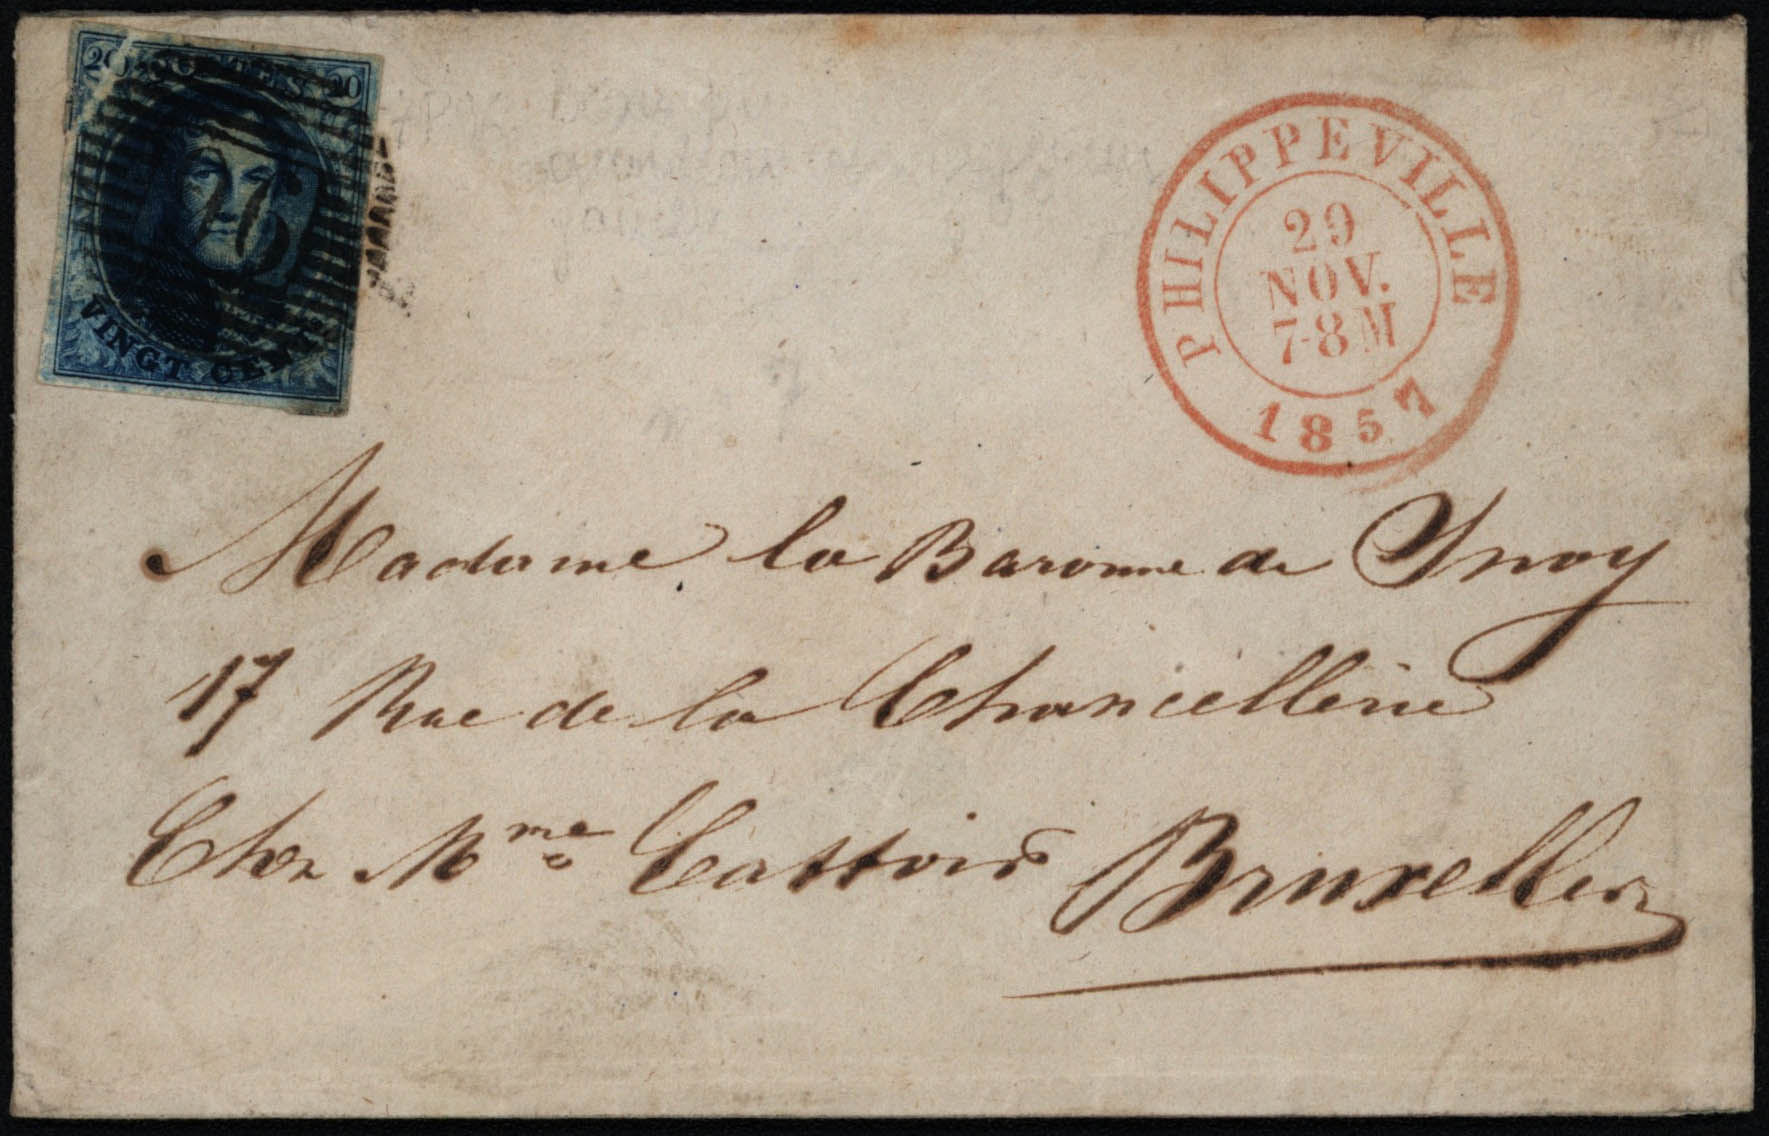 20 POSTES 20
VINGT CENTS
PHILIPPEVILLE
29
NOV.
7-8 M
1857
Madame la Baronne de Snoy
17 Rue de la Chancellerie
Chez Mme Cattoir Bruxelles